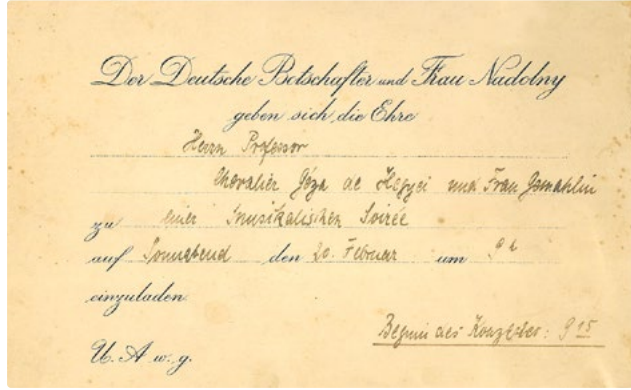 Der Deutsche Botschafter und Frau Nadolny
geben sich die Ehre
Herrn Professor
Chevalier Géza de Hegyei und Frau Gemahlin
zu einer musikalischen Soirée
auf Sonnabend den 20. Februar um 9 h
einzuladen.
Beginn des Konzertes: 9 15
U. A. w. g.